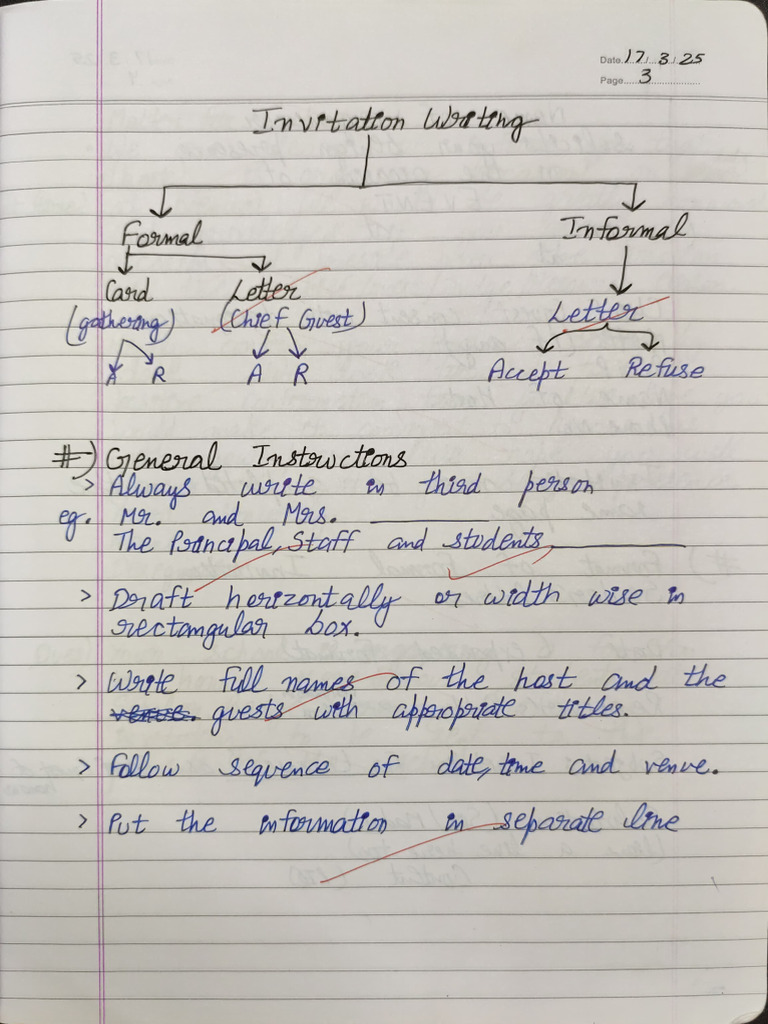 Date. 17. 3. 25
Page. 3
Invitation Writing
Formal Informal
Card Letter
(gathering) (Chief Guest) Letter
A R A R Accept Refuse
#) General Instructions
> Always write in third person
eg. Mr. and Mrs. ________
The Principal, Staff and students ________
> Draft herizontally or width wise in
rectangular box.
> Write full names of the host and the
venue. guests with appropriate titles.
> Follow sequence of date, time and venue.
> Put the information in separate line